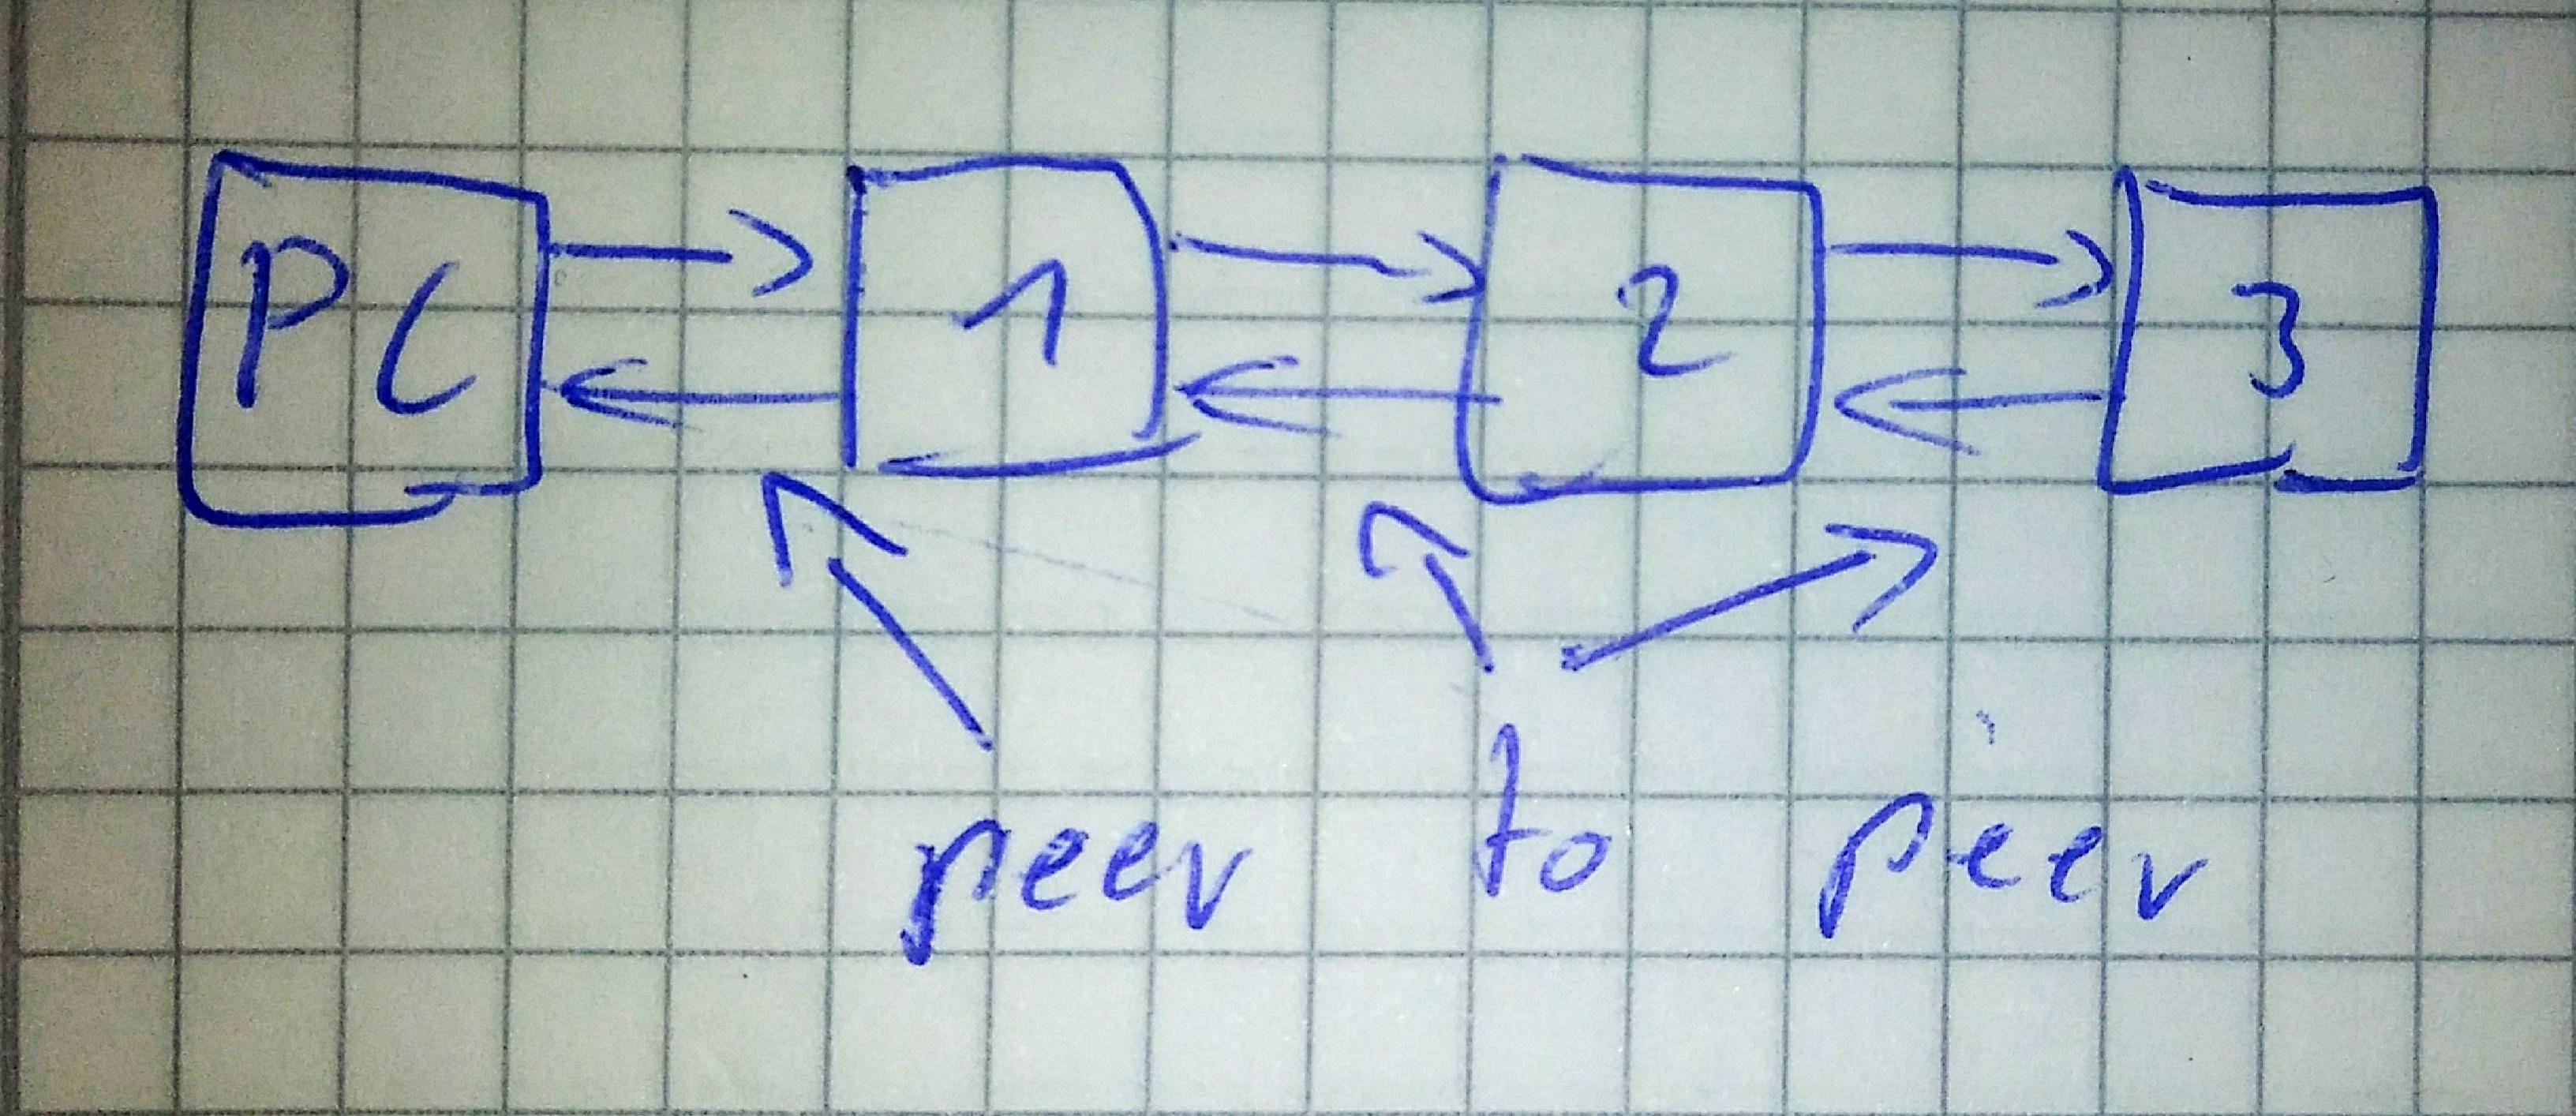 PC 1 2 3
peer to peer